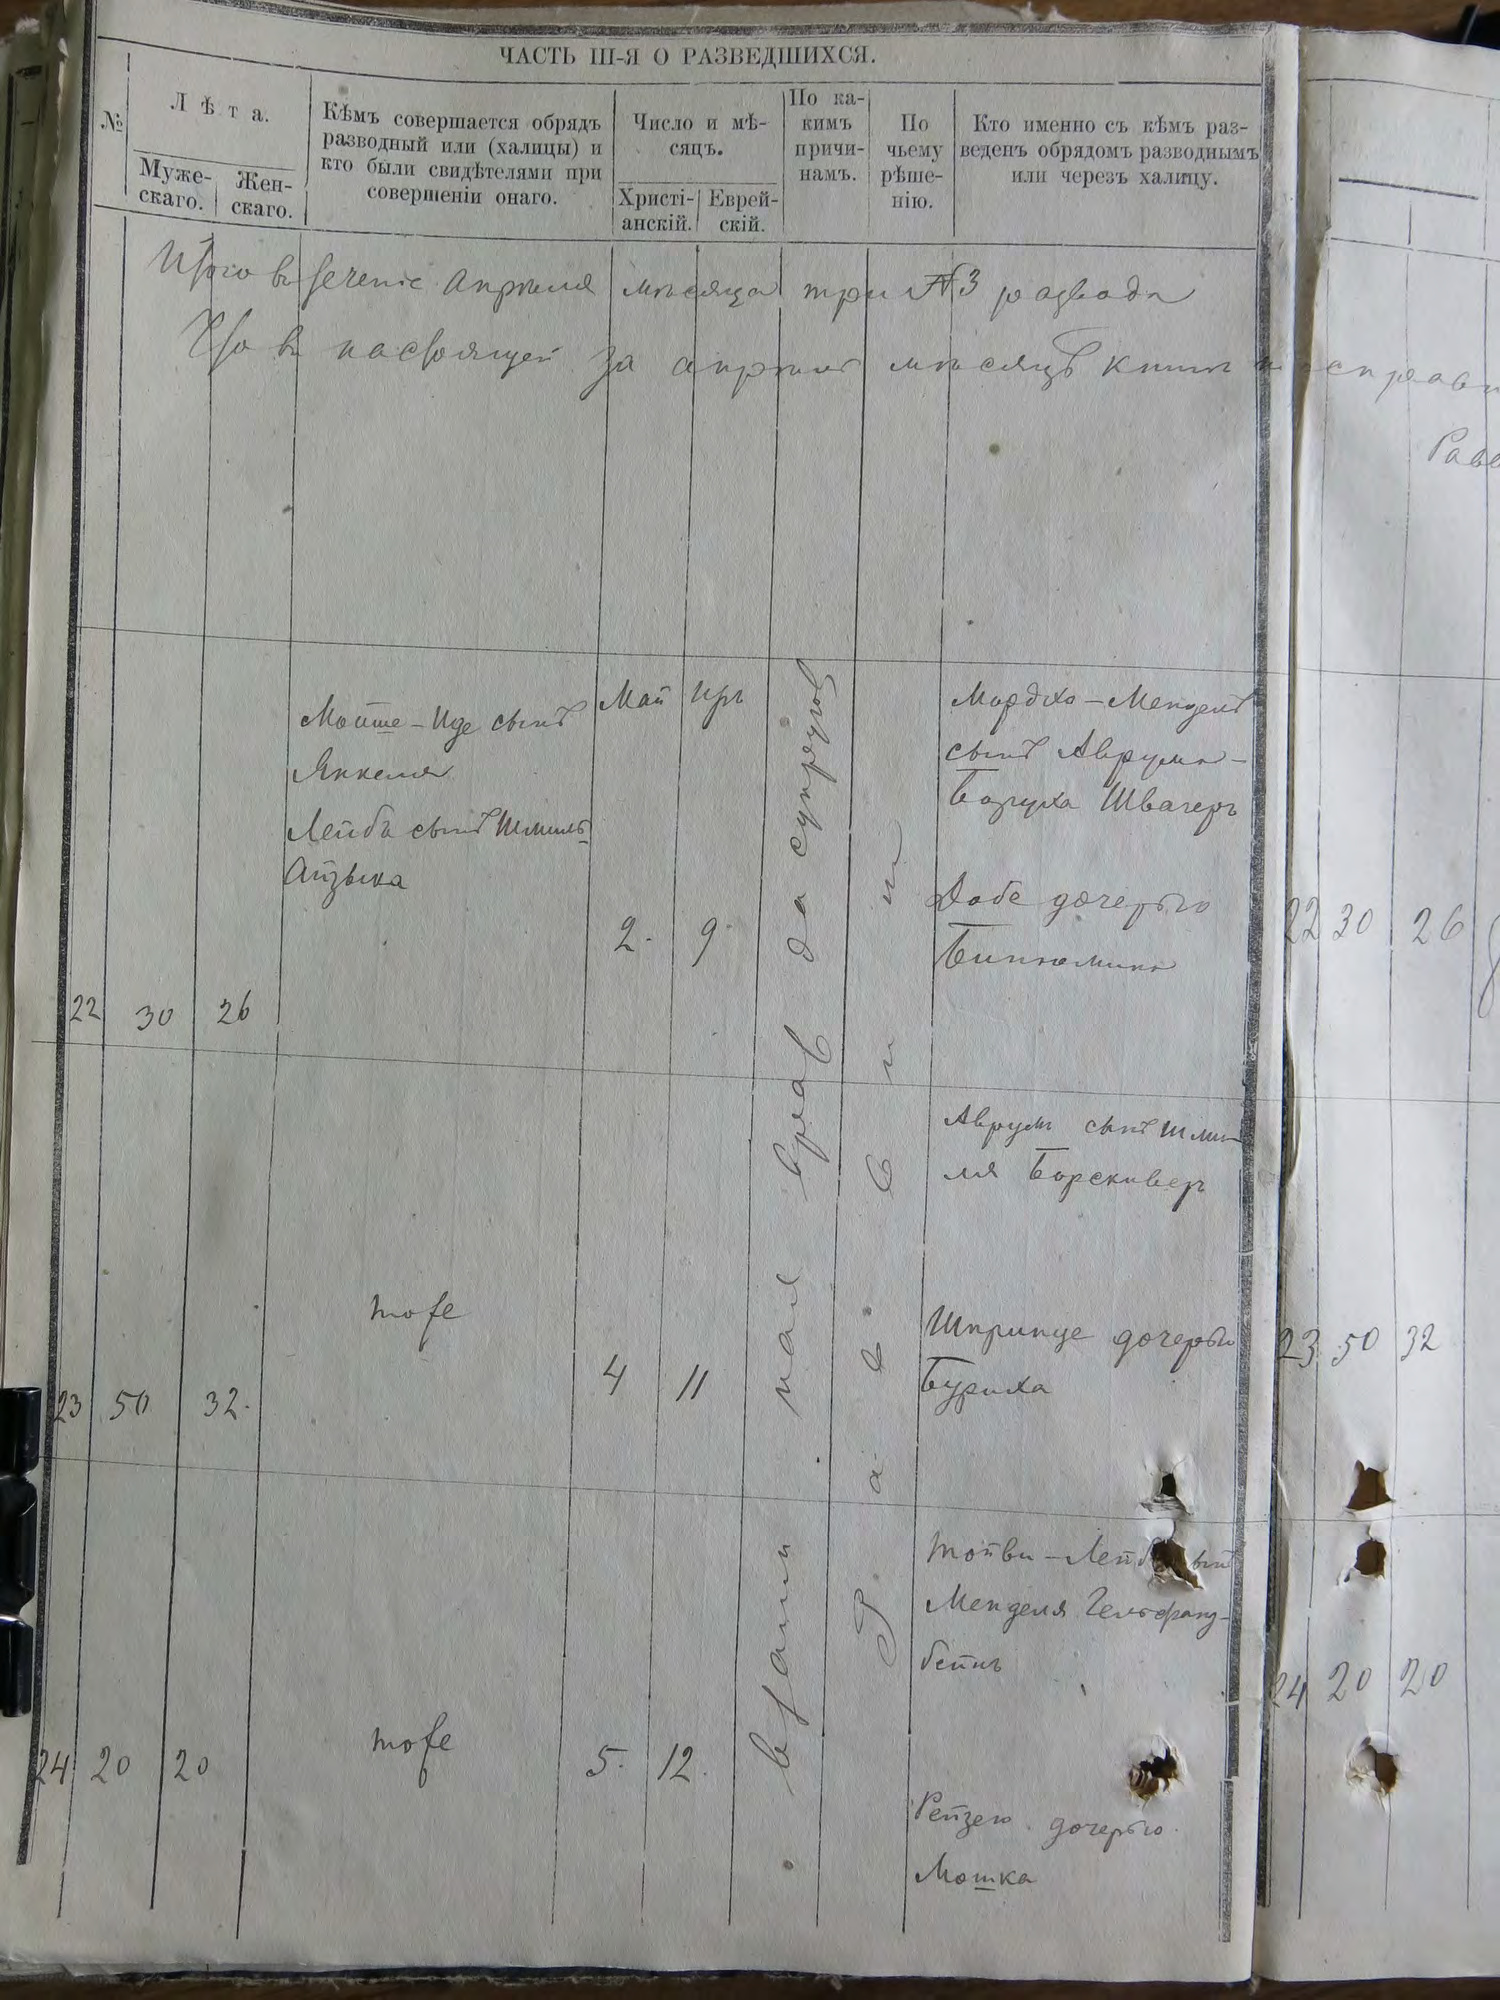 ЧАСТЬ III-Я О РАЗВЕДШИХСЯ.
№
Лѣта.
Муже-
скаго.
Жен-
скаго.
Кѣмъ совершается обрядъ
разводный или (халицы) и
кто были свидѣтелями при
совершеніи онаго.
Число и мѣ-
сяцъ.
Христі-
анскій.
Еврей-
скій.
По ка-
кимъ
причи-
намъ.
По
чьему
рѣше-
нію.
Кто именно съ кѣмъ раз-
веденъ обрядомъ разводнымъ
или черезъ халицу.
Итого въ теченіе Апрѣля мѣсяца три №3 развода
Что въ настоящей за апрѣль мѣсяцъ книги
Равв
22 30 26
Мойше-Иде сынъ
Янкеля
Лейба сынъ Шмиль-
Айзыка
Май
2.
Иръ
9.
взаимная вражда супруговъ
Раввинъ
Мордко-Мендель
сынъ Аврума-
Боруха Швагеръ
Добе дочерью
Биньомина
22 30 26
23 50 32.
тоже
4
11
Аврумъ сынъ Шми-
ля Борскиверъ
Шпринце дочерью
Буриха
23 50 32
24 20 20
тоже
5.
12.
Тойви-Лейб
Менделя Гельфанд-
бейнъ
Рейзею дочерью
Мошка
24 20 20